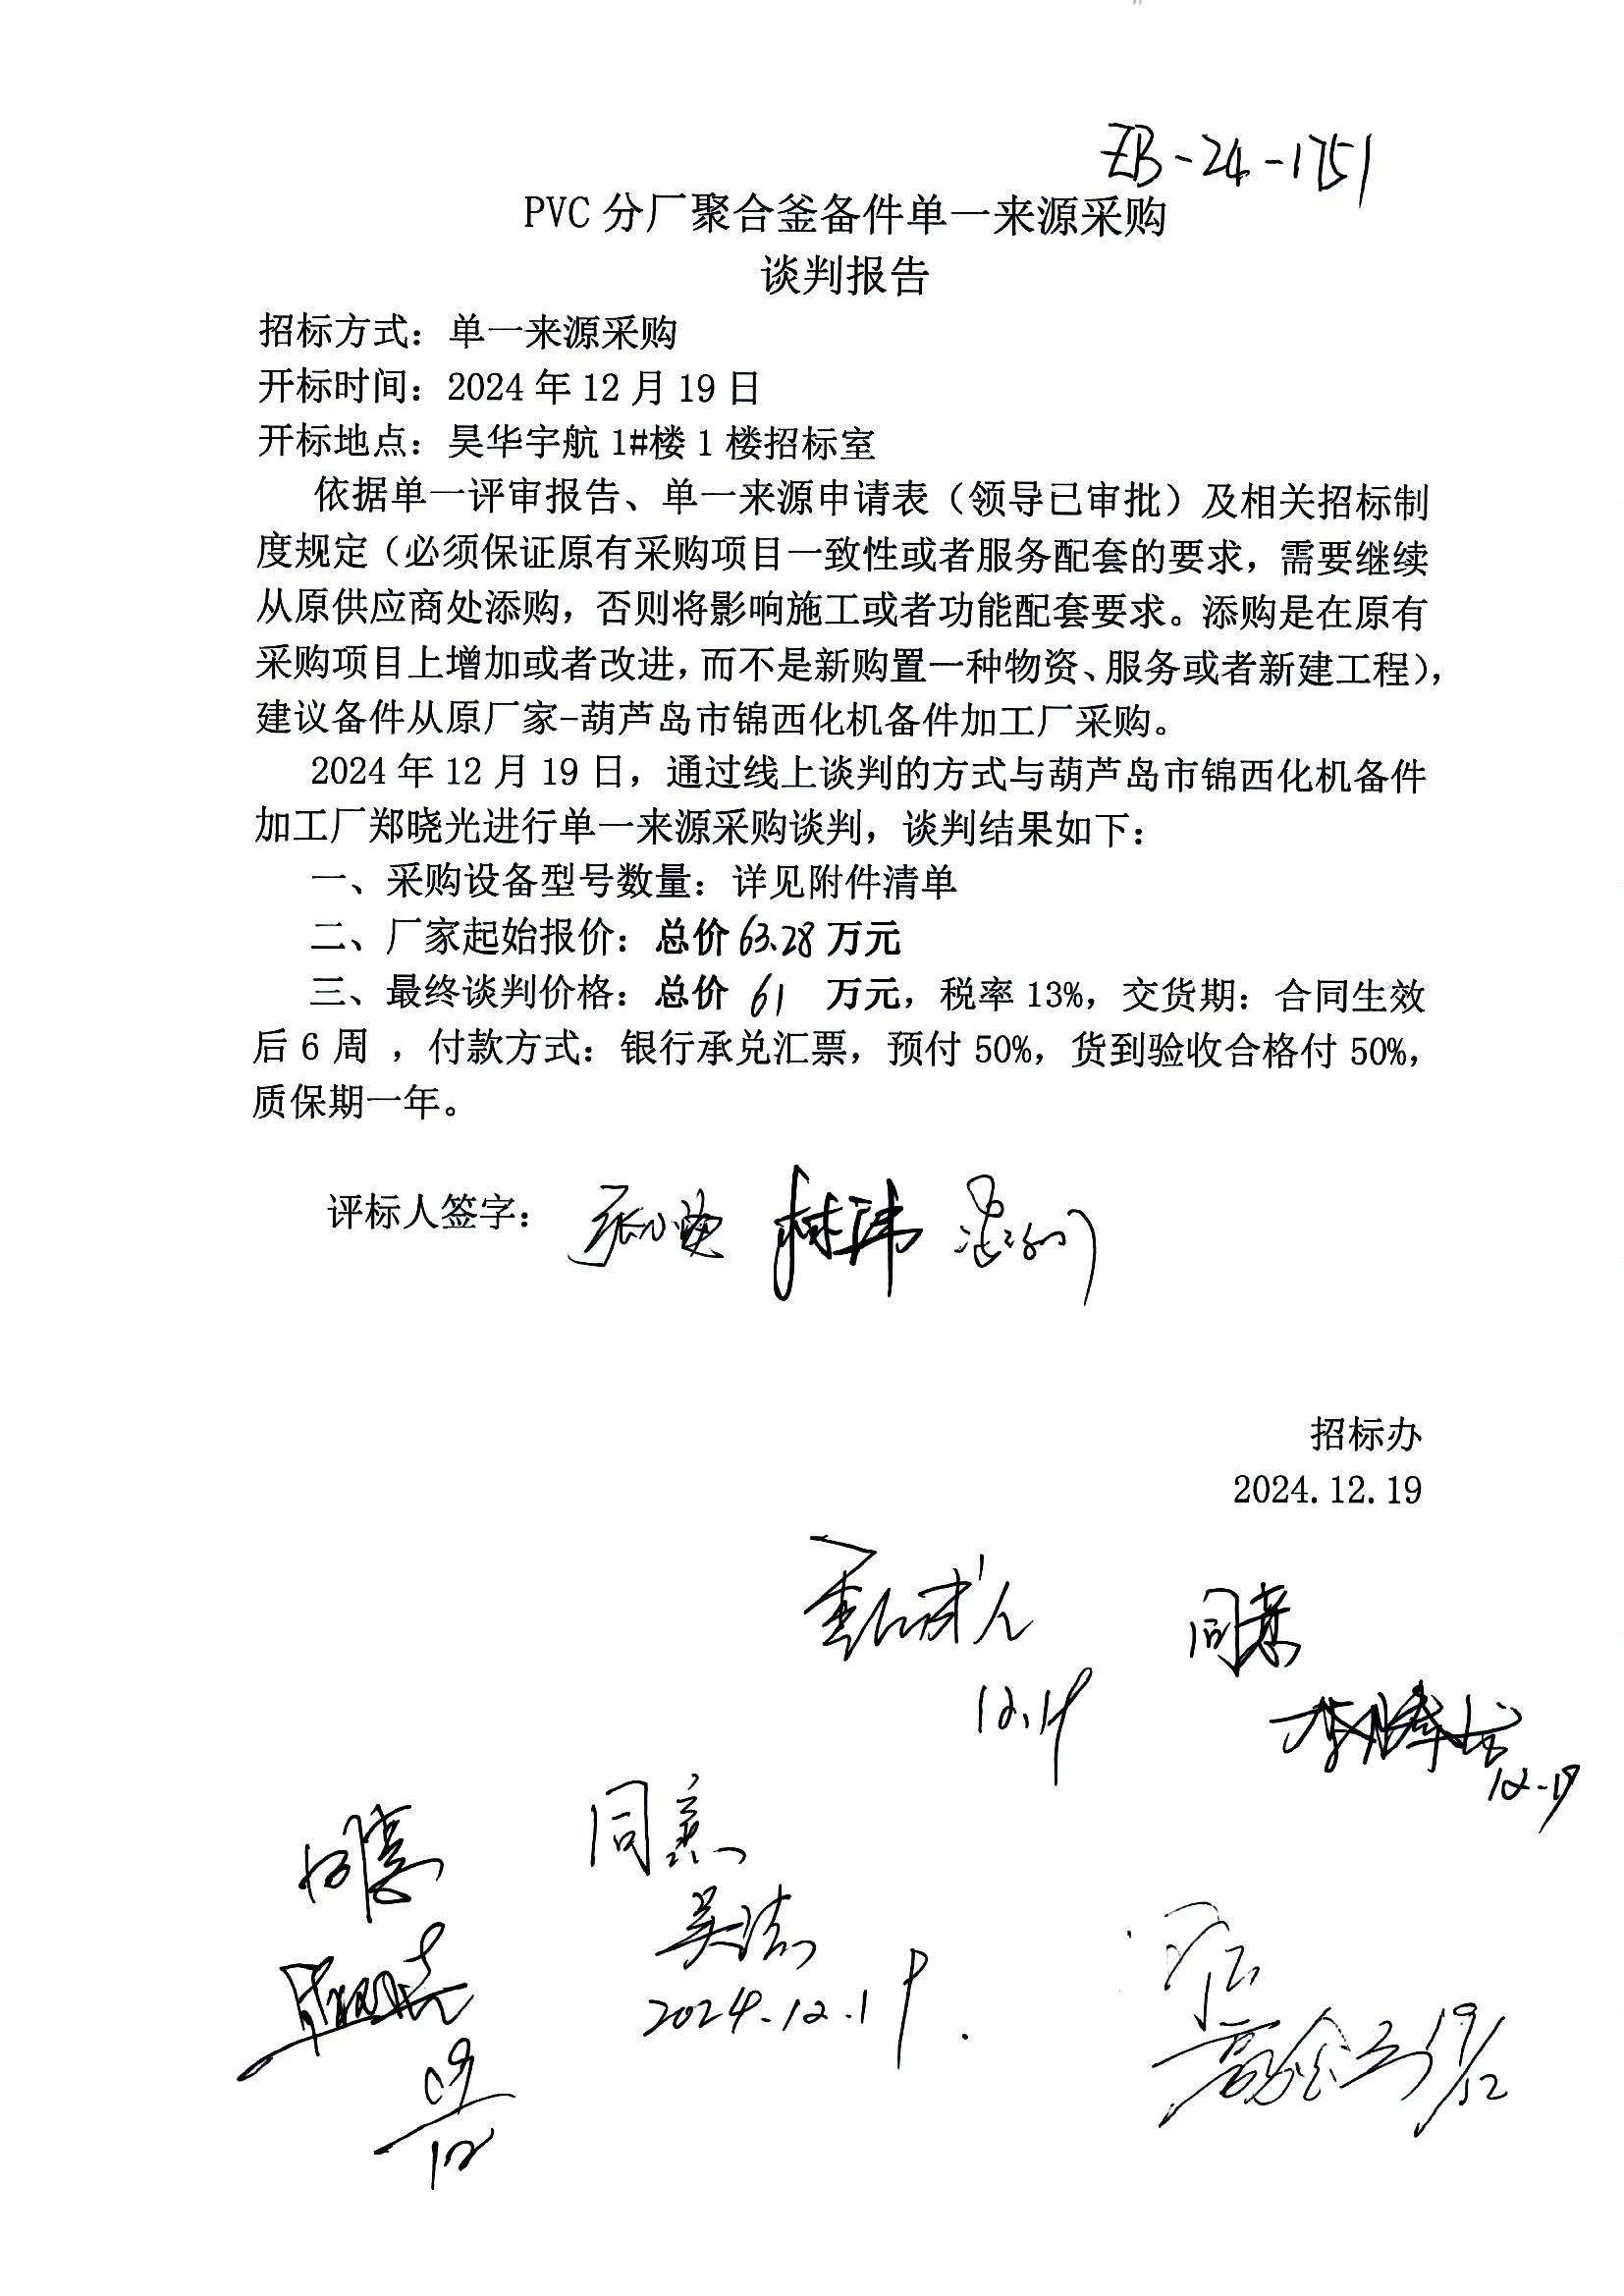 ZB-24-1751
PVC分厂聚合釜备件单一来源采购
谈判报告
招标方式：单一来源采购
开标时间：2024年12月19日
开标地点：昊华宇航1#楼1楼招标室
依据单一评审报告、单一来源申请表（领导已审批）及相关招标制
度规定（必须保证原有采购项目一致性或者服务配套的要求，需要继续
从原供应商处添购，否则将影响施工或者功能配套要求。添购是在原有
采购项目上增加或者改进，而不是新购置一种物资、服务或者新建工程），
建议备件从原厂家-葫芦岛市锦西化机备件加工厂采购。
2024年12月19日，通过线上谈判的方式与葫芦岛市锦西化机备件
加工厂郑晓光进行单一来源采购谈判，谈判结果如下：
一、采购设备型号数量：详见附件清单
二、厂家起始报价：总价63.28万元
三、最终谈判价格：总价 61 万元，税率13%，交货期：合同生效
后6周 ，付款方式：银行承兑汇票，预付50%，货到验收合格付50%，
质保期一年。
评标人签字： 林玮
招标办
2024.12.19
同意
12.19
12-19
同意
同意
吴洁
2024.12.19.
19/12
19/12